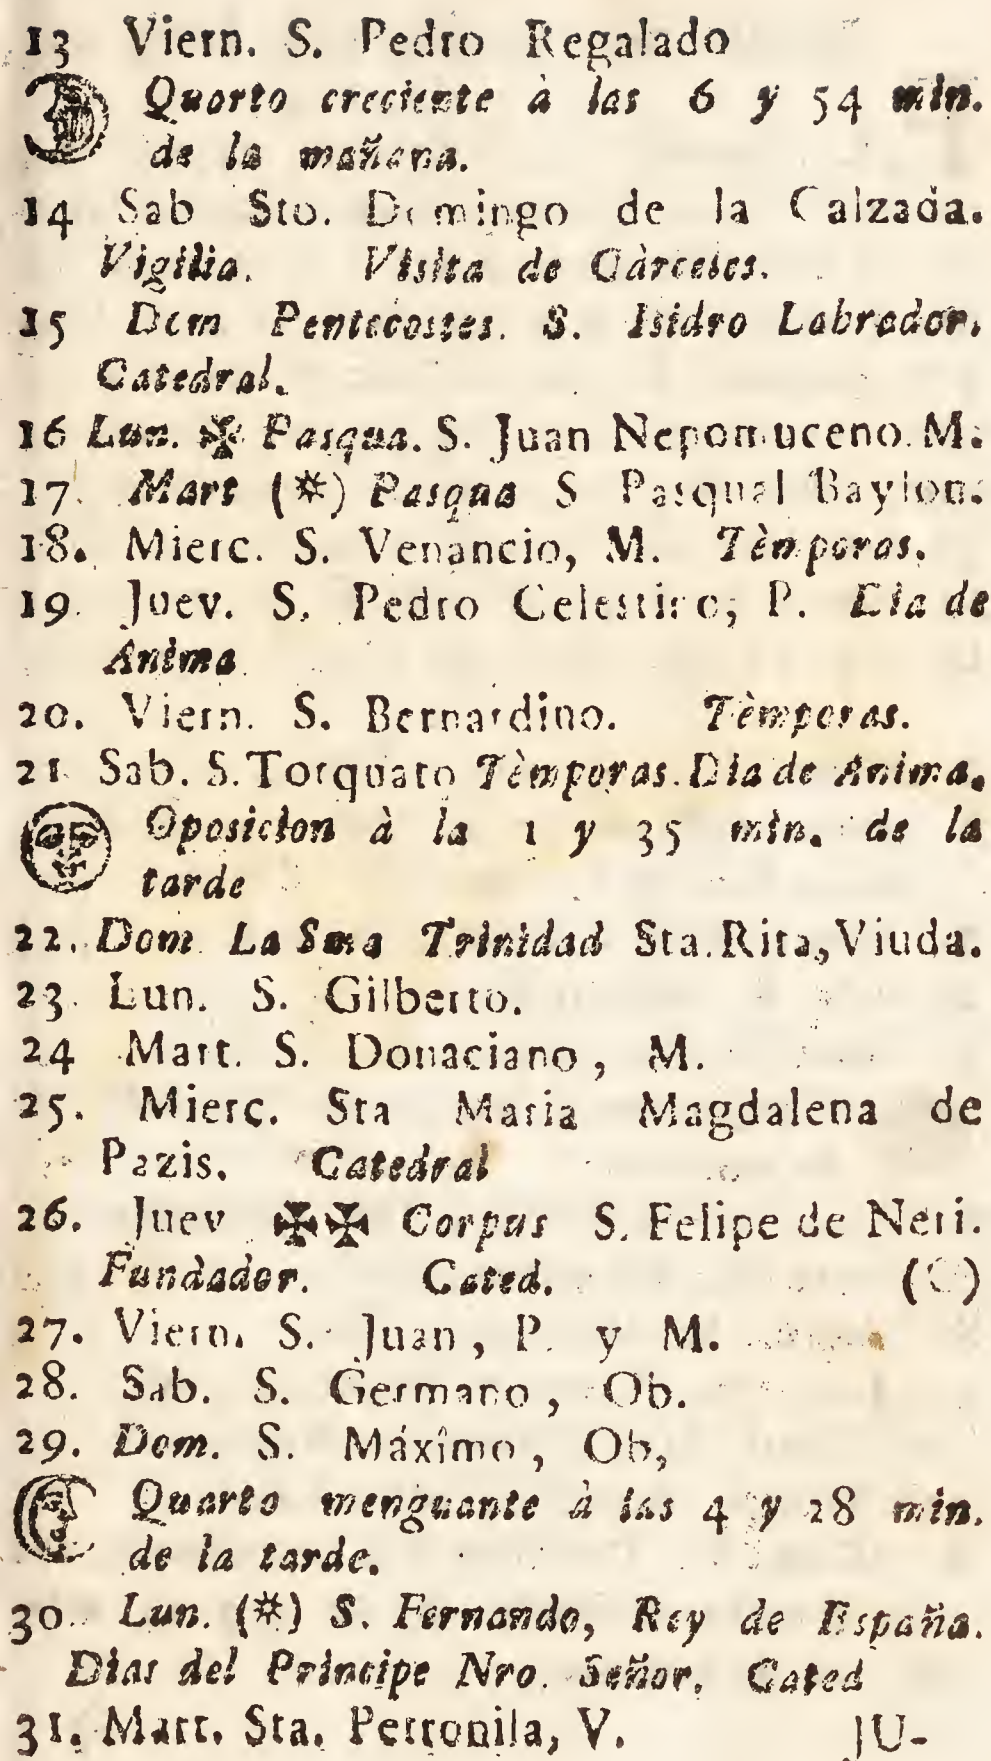 13 Viern. S. Pedro Regalado
Quorto creciente à las 6 y 54 min.
de la mañana.
14 Sab Sto. Domingo de la Calzada.
Vigilia. Visita de Càrceles.
15 Dom Pentecostes. S. Isidro Labrador.
Catedral.
16 Lun. ✠ Pasqua. S. Juan Nepomuceno. M.
17. Mart (*) Pasqua S Pasqual Baylon.
18. Mierc. S. Venancio, M. Tèmporas.
19. Juev. S. Pedro Celestino, P. Dia de
Anima
20. Viern. S. Bernardino. Tèmporas.
21 Sab. S. Torquato Tèmporas. Dia de Anima.
Oposicion à la 1 y 35 min. de la
tarde
22. Dom La Sma Trinidad Sta. Rita, Viuda.
23. Lun. S. Gilberto.
24 Mart. S. Donaciano, M.
25. Mierc. Sta Maria Magdalena de
Pazis. Catedral
26. Juev ✠✠ Corpus S. Felipe de Neri.
Fundador. Cated. (C)
27. Viern. S. Juan, P. y M.
28. Sab. S. Germano, Ob.
29. Dom. S. Máximo, Ob,
Quarto menguante à las 4 y 28 min.
de la tarde.
30. Lun. (*) S. Fernando, Rey de España.
Dias del Principe Nro. Señor. Cated
31. Mart. Sta. Petronila, V. JU-